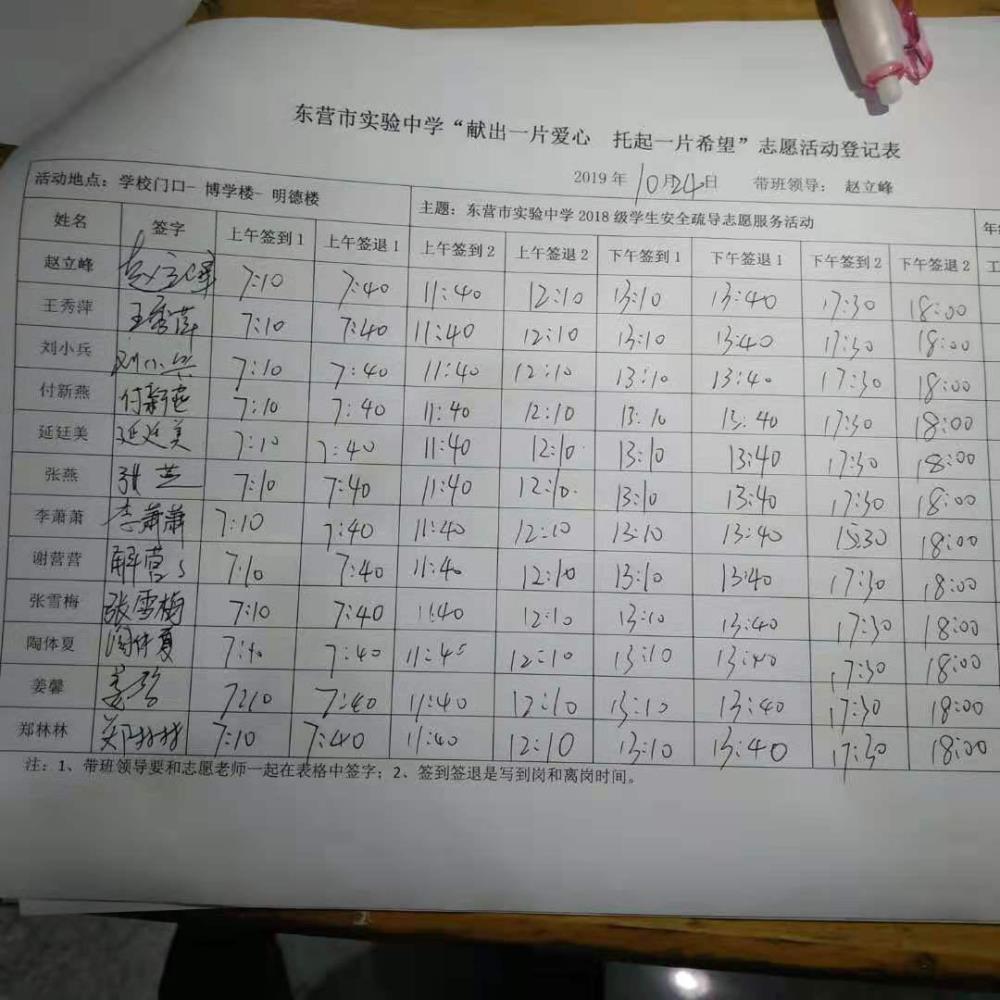 东营市实验中学“献出一片爱心 托起一片希望”志愿活动登记表
2019年10月24日 带班领导：赵立峰
活动地点：学校门口- 博学楼- 明德楼 主题：东营市实验中学2018级学生安全疏导志愿服务活动
姓名 签字 上午签到1 上午签退1 上午签到2 上午签退2 下午签到1 下午签退1 下午签到2 下午签退2
赵立峰 赵立峰 7:10 7:40 11:40 12:10 13:10 13:40 17:30 18:00
王秀萍 王秀萍 7:10 7:40 11:40 12:10 13:10 13:40 17:30 18:00
刘小兵 刘小兵 7:10 7:40 11:40 12:10 13:10 13:40 17:30 18:00
付新燕 付新燕 7:10 7:40 11:40 12:10 13:10 13:40 17:30 18:00
延廷美 延廷美 7:10 7:40 11:40 12:10 13:10 13:40 17:30 18:00
张燕 张燕 7:10 7:40 11:40 12:10 13:10 13:40 17:30 18:00
李萧萧 李萧萧 7:10 7:40 11:40 12:10 13:10 13:40 15:30 18:00
谢营营 7:10 7:40 11:40 12:10 13:10 13:40 17:30 18:00
张雪梅 张雪梅 7:10 7:40 11:40 12:10 13:10 13:40 17:30 18:00
陶体夏 陶体夏 7:10 7:40 11:45 12:10 13:10 13:40 17:30 18:00
姜馨 7:10 7:40 11:40 12:10 13:10 13:40 17:30 18:00
郑林林 郑林林 7:10 7:40 11:40 12:10 13:10 13:40 17:30 18:00
注：1、带班领导要和志愿老师一起在表格中签字；2、签到签退是写到岗和离岗时间。